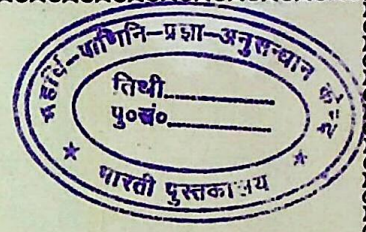 महर्षि-पाणिनि-प्रज्ञा-अनुसन्धान केन्द्र
तिथी
पु०सं०
भारती पुस्तकालय